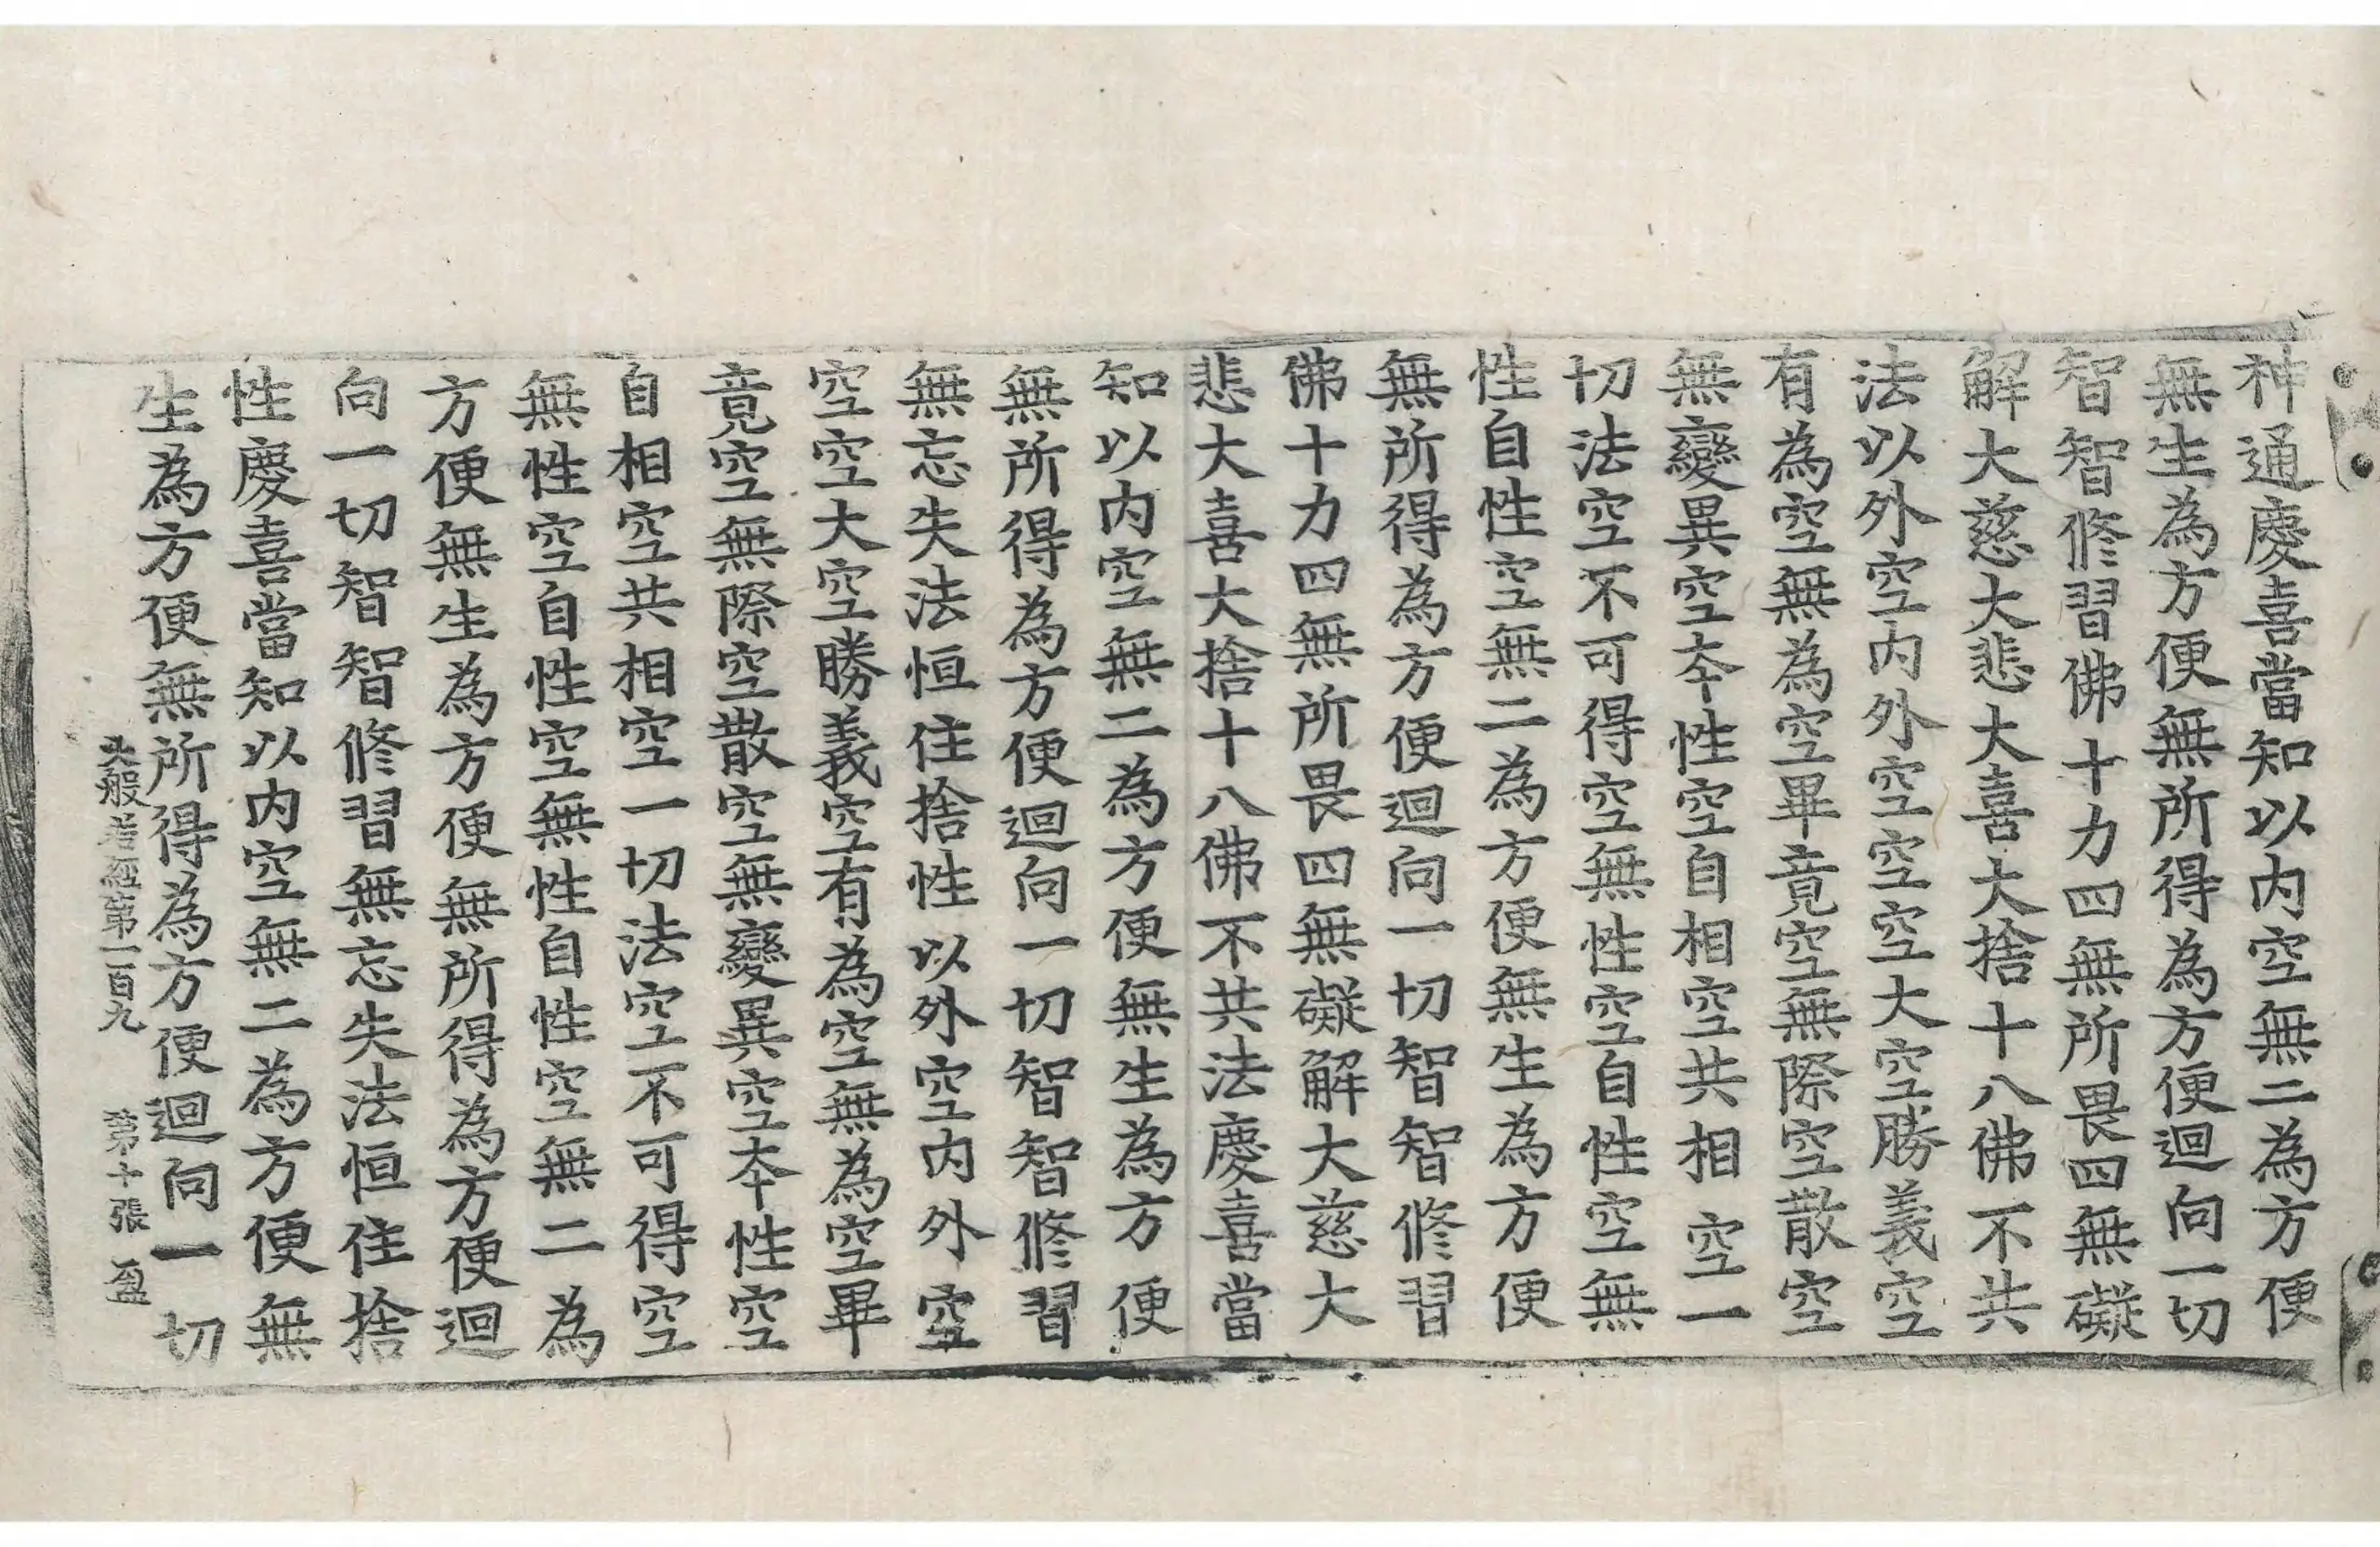 神通慶喜當知以内空無二為方便
無生為方便無所得為方便迴向一切
智智修習佛十力四無所畏四無礙
解大慈大悲大喜大捨十八佛不共
法以外空内外空空空大空勝義空
有為空無為空畢竟空無際空散空
無變異空本性空自相空共相空一
切法空不可得空無性空自性空無
性自性空無二為方便無生為方便
無所得為方便迴向一切智智修習
佛十力四無所畏四無礙解大慈大
悲大喜大捨十八佛不共法慶喜當
知以内空無二為方便無生為方便
無所得為方便迴向一切智智修習
無忘失法恒住捨性以外空内外空
空空大空勝義空有為空無為空畢
竟空無際空散空無變異空本性空
自相空共相空一切法空不可得空
無性空自性空無性自性空無二為
方便無生為方便無所得為方便迴
向一切智智修習無忘失法恒住捨
性慶喜當知以内空無二為方便無
生為方便無所得為方便迴向一切
大般若經第一百九 第十張 盈